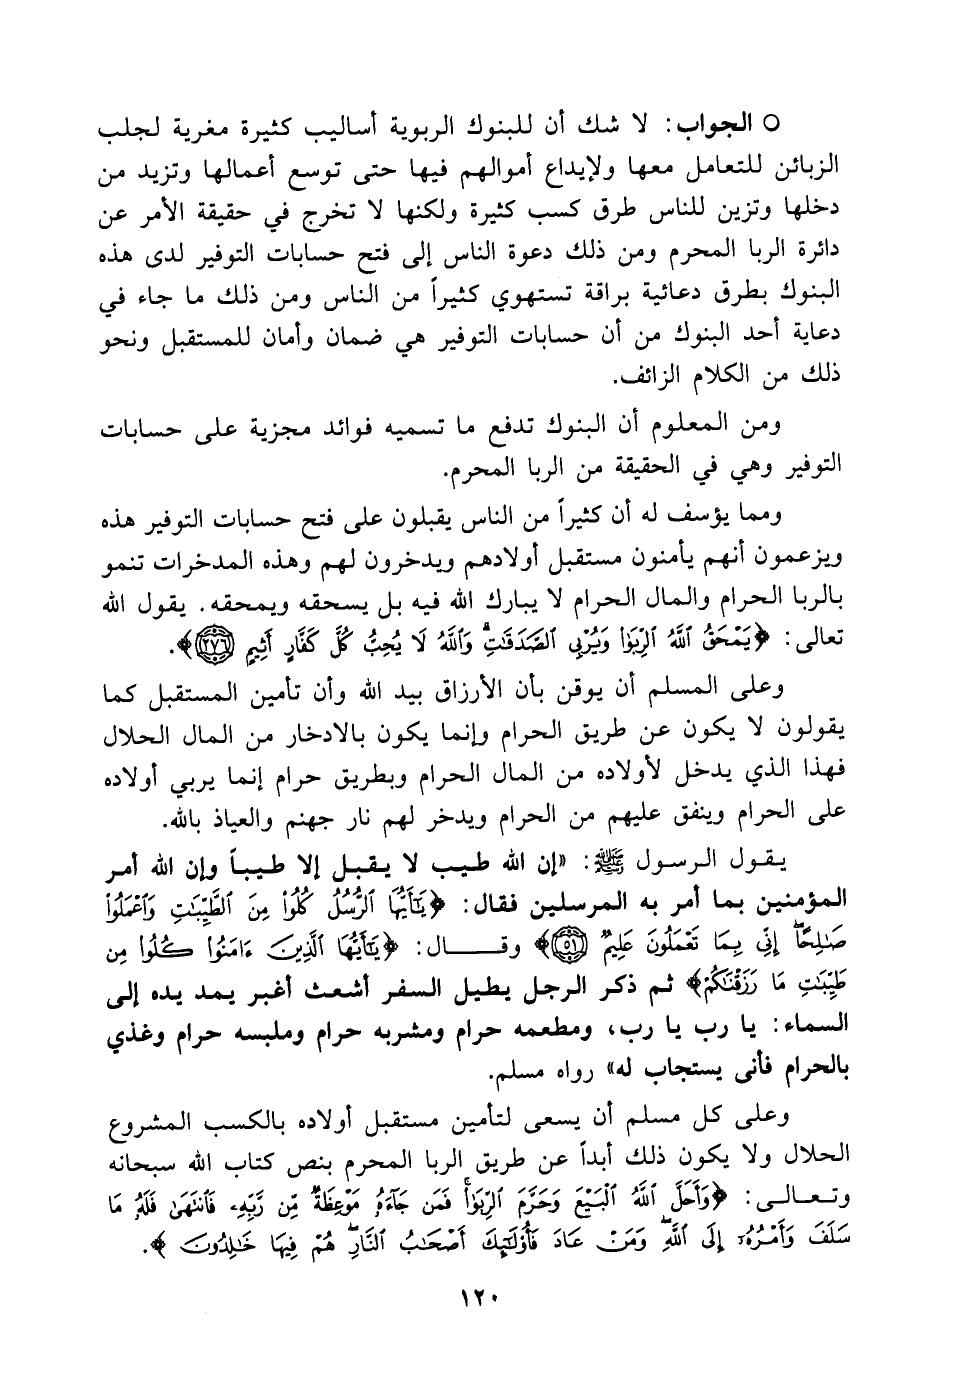 ○ الجواب: لا شك أن للبنوك الربوية أساليب كثيرة مغرية لجلب
الزبائن للتعامل معها ولإيداع أموالهم فيها حتى توسع أعمالها وتزيد من
دخلها وتزين للناس طرق كسب كثيرة ولكنها لا تخرج في حقيقة الأمر عن
دائرة الربا المحرم ومن ذلك دعوة الناس إلى فتح حسابات التوفير لدى هذه
البنوك بطرق دعائية براقة تستهوي كثيراً من الناس ومن ذلك ما جاء في
دعاية أحد البنوك من أن حسابات التوفير هي ضمان وأمان للمستقبل ونحو
ذلك من الكلام الزائف.
ومن المعلوم أن البنوك تدفع ما تسميه فوائد مجزية على حسابات
التوفير وهي في الحقيقة من الربا المحرم.
ومما يؤسف له أن كثيراً من الناس يقبلون على فتح حسابات التوفير هذه
ويزعمون أنهم يأمنون مستقبل أولادهم ويدخرون لهم وهذه المدخرات تنمو
بالربا الحرام والمال الحرام لا يبارك الله فيه بل يسحقه ويمحقه. يقول الله
تعالى: ﴿يَمْحَقُ ٱللَّهُ ٱلرِّبَوٰا۟ وَيُرْبِى ٱلصَّدَقَٰتِ ۗ وَٱللَّهُ لَا يُحِبُّ كُلَّ كَفَّارٍ أَثِيمٍ ٢٧٦﴾.
وعلى المسلم أن يوقن بأن الأرزاق بيد الله وأن تأمين المستقبل كما
يقولون لا يكون عن طريق الحرام وإنما يكون بالادخار من المال الحلال
فهذا الذي يدخل لأولاده من المال الحرام وبطريق حرام إنما يربي أولاده
على الحرام وينفق عليهم من الحرام ويدخر لهم نار جهنم والعياذ بالله.
يقول الرسول ﷺ: «إن الله طيب لا يقبل إلا طيباً وإن الله أمر
المؤمنين بما أمر به المرسلين فقال: ﴿يَٰٓأَيُّهَا ٱلرُّسُلُ كُلُوا۟ مِنَ ٱلطَّيِّبَٰتِ وَٱعْمَلُوا۟
صَٰلِحًا ۖ إِنِّى بِمَا تَعْمَلُونَ عَلِيمٌ ٥١﴾ وقـــال: ﴿يَٰٓأَيُّهَا ٱلَّذِينَ ءَامَنُوا۟ كُلُوا۟ مِن
طَيِّبَٰتِ مَا رَزَقْنَٰكُمْ﴾ ثم ذكر الرجل يطيل السفر أشعث أغبر يمد يده إلى
السماء: يا رب يا رب، ومطعمه حرام ومشربه حرام وملبسه حرام وغذي
بالحرام فأنى يستجاب له» رواه مسلم.
وعلى كل مسلم أن يسعى لتأمين مستقبل أولاده بالكسب المشروع
الحلال ولا يكون ذلك أبداً عن طريق الربا المحرم بنص كتاب الله سبحانه
وتعالى: ﴿وَأَحَلَّ ٱللَّهُ ٱلْبَيْعَ وَحَرَّمَ ٱلرِّبَوٰا۟ ۚ فَمَن جَآءَهُۥ مَوْعِظَةٌ مِّن رَّبِّهِۦ فَٱنتَهَىٰ فَلَهُۥ مَا
سَلَفَ وَأَمْرُهُۥٓ إِلَى ٱللَّهِ ۖ وَمَنْ عَادَ فَأُو۟لَٰٓئِكَ أَصْحَٰبُ ٱلنَّارِ ۖ هُمْ فِيهَا خَٰلِدُونَ﴾.
١٢٠